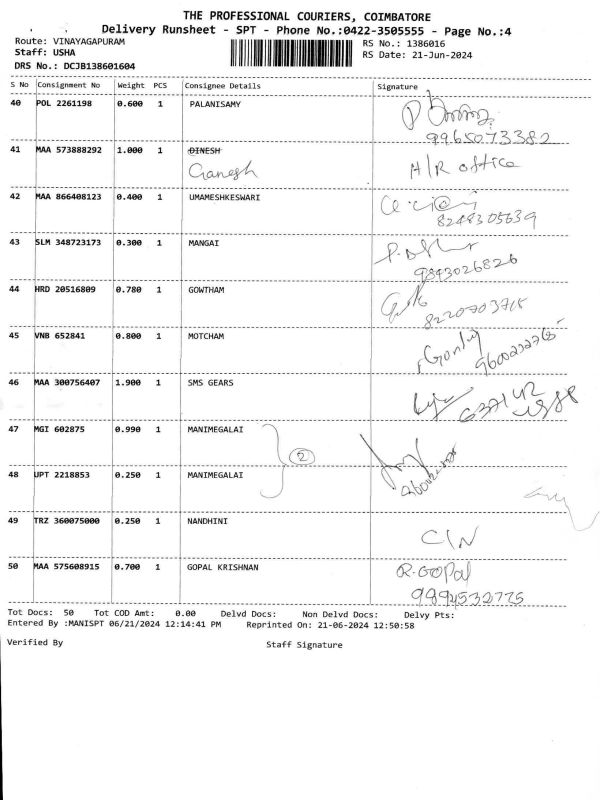 THE PROFESSIONAL COURIERS, COIMBATORE
Delivery Runsheet - SPT - Phone No.:0422-3505555 - Page No.:4
Route: VINAYAGAPURAM
Staff: USHA
DRS No.: DCJB138601604
RS No.: 1386016
RS Date: 21-Jun-2024
S No Consignment No Weight PCS Consignee Details Signature
40 POL 2261198 0.600 1 PALANISAMY
9965073382
41 MAA 573888292 1.000 1 DINESH
Ganesh H/R office
42 MAA 866408123 0.400 1 UMAMESHKESWARI
8248305639
43 SLM 348723173 0.300 1 MANGAI
9843026826
44 HRD 20516809 0.780 1 GOWTHAM
8220703715
45 VNB 652841 0.800 1 MOTCHAM
46 MAA 300756407 1.900 1 SMS GEARS
47 MGI 602875 0.990 1 MANIMEGALAI
2
48 UPT 2218853 0.250 1 MANIMEGALAI
49 TRZ 360075000 0.250 1 NANDHINI
C/N
50 MAA 575608915 0.700 1 GOPAL KRISHNAN R.GOPal
9894532775
Tot Docs: 50 Tot COD Amt: 0.00 Delvd Docs: Non Delvd Docs: Delvy Pts:
Entered By :MANISPT 06/21/2024 12:14:41 PM Reprinted On: 21-06-2024 12:50:58
Verified By Staff Signature